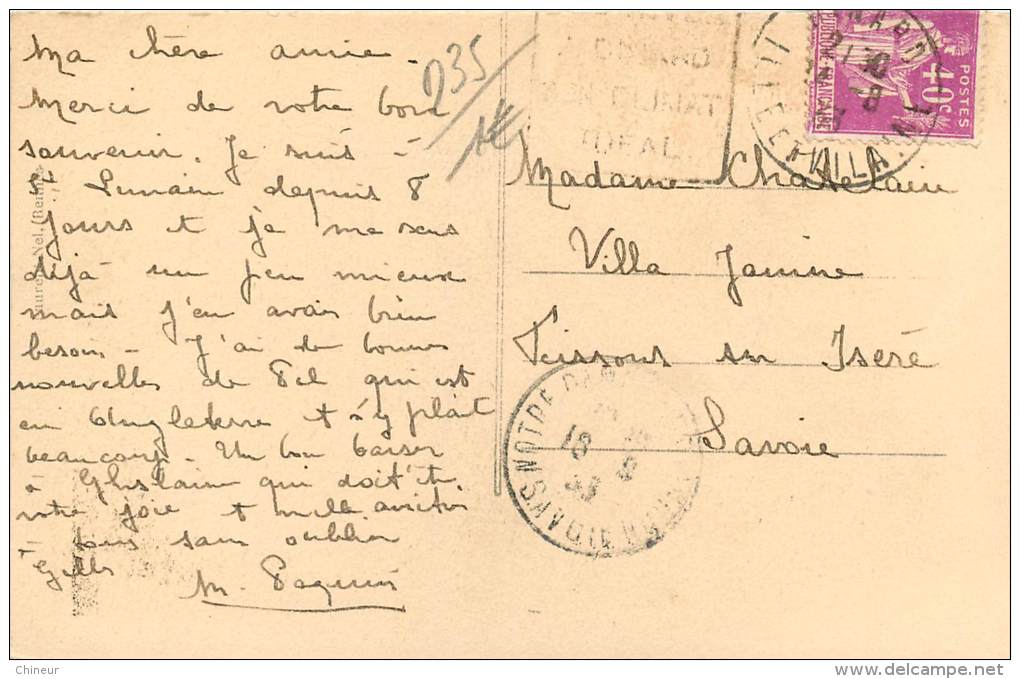 Ma chère amie.
Merci de votre bon
souvenir. Je suis à
St Lunaire depuis 8
jours et je me sens
déjà un peu mieux
mais j'en avais bien
besoin - J'ai de bonnes
nouvelles de qui est
en Angleterre et s'y plaît
beaucoup. Un bon baiser
à Ghislaine qui doit être
votre joie et mille amitiés
à tous sans oublier
Gilles
M.
235
1€
DINARD
SON CLIMAT
IDEAL
DINARD
21 30
-8
ILLE ET VILAINE
REPUBLIQUE FRANÇAISE
40c
POSTES
Madame Chatelain
Villa Janine
sur Isère
Savoie
NOTRE DAME
18
8
33
SAVOIE
Nel. (Rennes
Chineur
delcampe.net